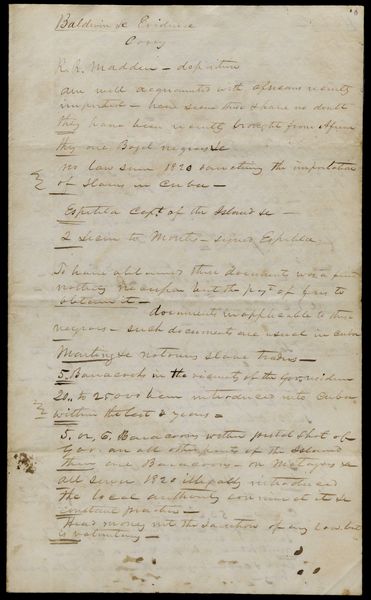 8
Baldwin &c Evidence
Copy
R. R. Madden - deposition
am well acquainted with africans recently
imported - have seen these & have no doubt
they have been recently brought from Africa
they are Bozal negroes &c
no law since 1820 sanctioning the importation
of slaves in Cuba -
Espeleta Capt. of the Island &c -
2 Licen to Montes - signed Espeleta
To have obtained these documents was a
nothing necessary but the payt of fees to
obtain it -
documents inapplicable to these
negroes - such documents are usual in Cuba
Martinez &c notorious slave traders -
5. Baracoons in the vicinity of the Gov. residence
20.. to 25000 been introduced into Cuba
within the last 3 years -
5. or, 6. Baracoons within pistol shot of
Gov. on all other parts of the Island
there are Baracoons - on &c
all since 1820 illegally introduced
the local authority connive at it &c
constant practice -
Head money not the sanction of any law but
is voluntary -